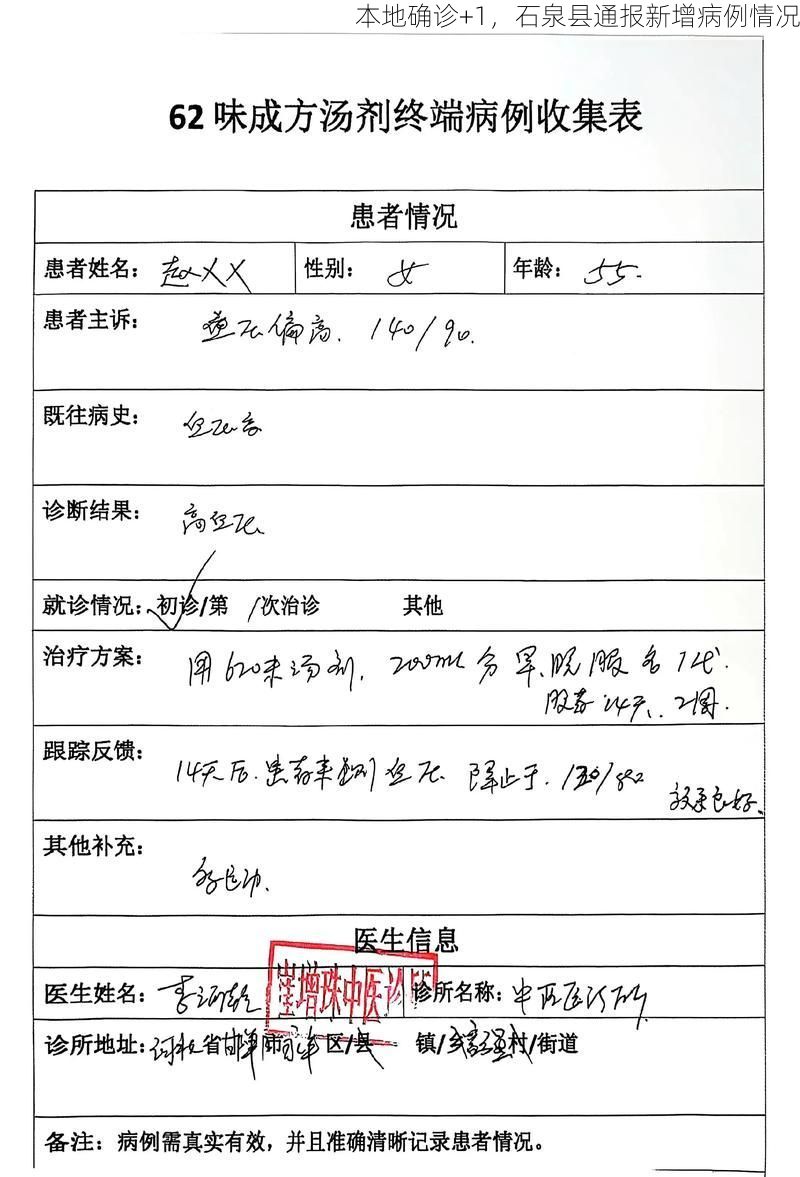 本地确诊+1，石泉县通报新增病例情况
62 味成方汤剂终端病例收集表
患者情况
患者姓名： 赵XX 性别： 女 年龄： 55.
患者主诉： 血压偏高. 140/90.
既往病史： 血压高
诊断结果： 高血压
就诊情况：初诊/第 /次治诊 其他
治疗方案： 用62味汤剂, 200ml 分早、晚服各1代.
服药14天、2周.
跟踪反馈： 14天后. 患者来测血压 降止于.
效果良好.
其他补充： 多运动.
医生信息
医生姓名： 李 诊所名称： 中医诊所
崔增珠中医诊所
诊所地址： 河北省邯郸市 区/县 镇/乡 村/街道
备注：病例需真实有效，并且准确清晰记录患者情况。